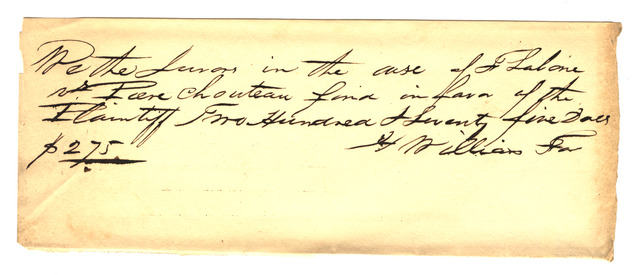 We the Jurors in the case of F Labone
vs Piere Chouteau find in favor of the
Plaintiff Two Hundred & Seventy five Dols
$275. H Williams For